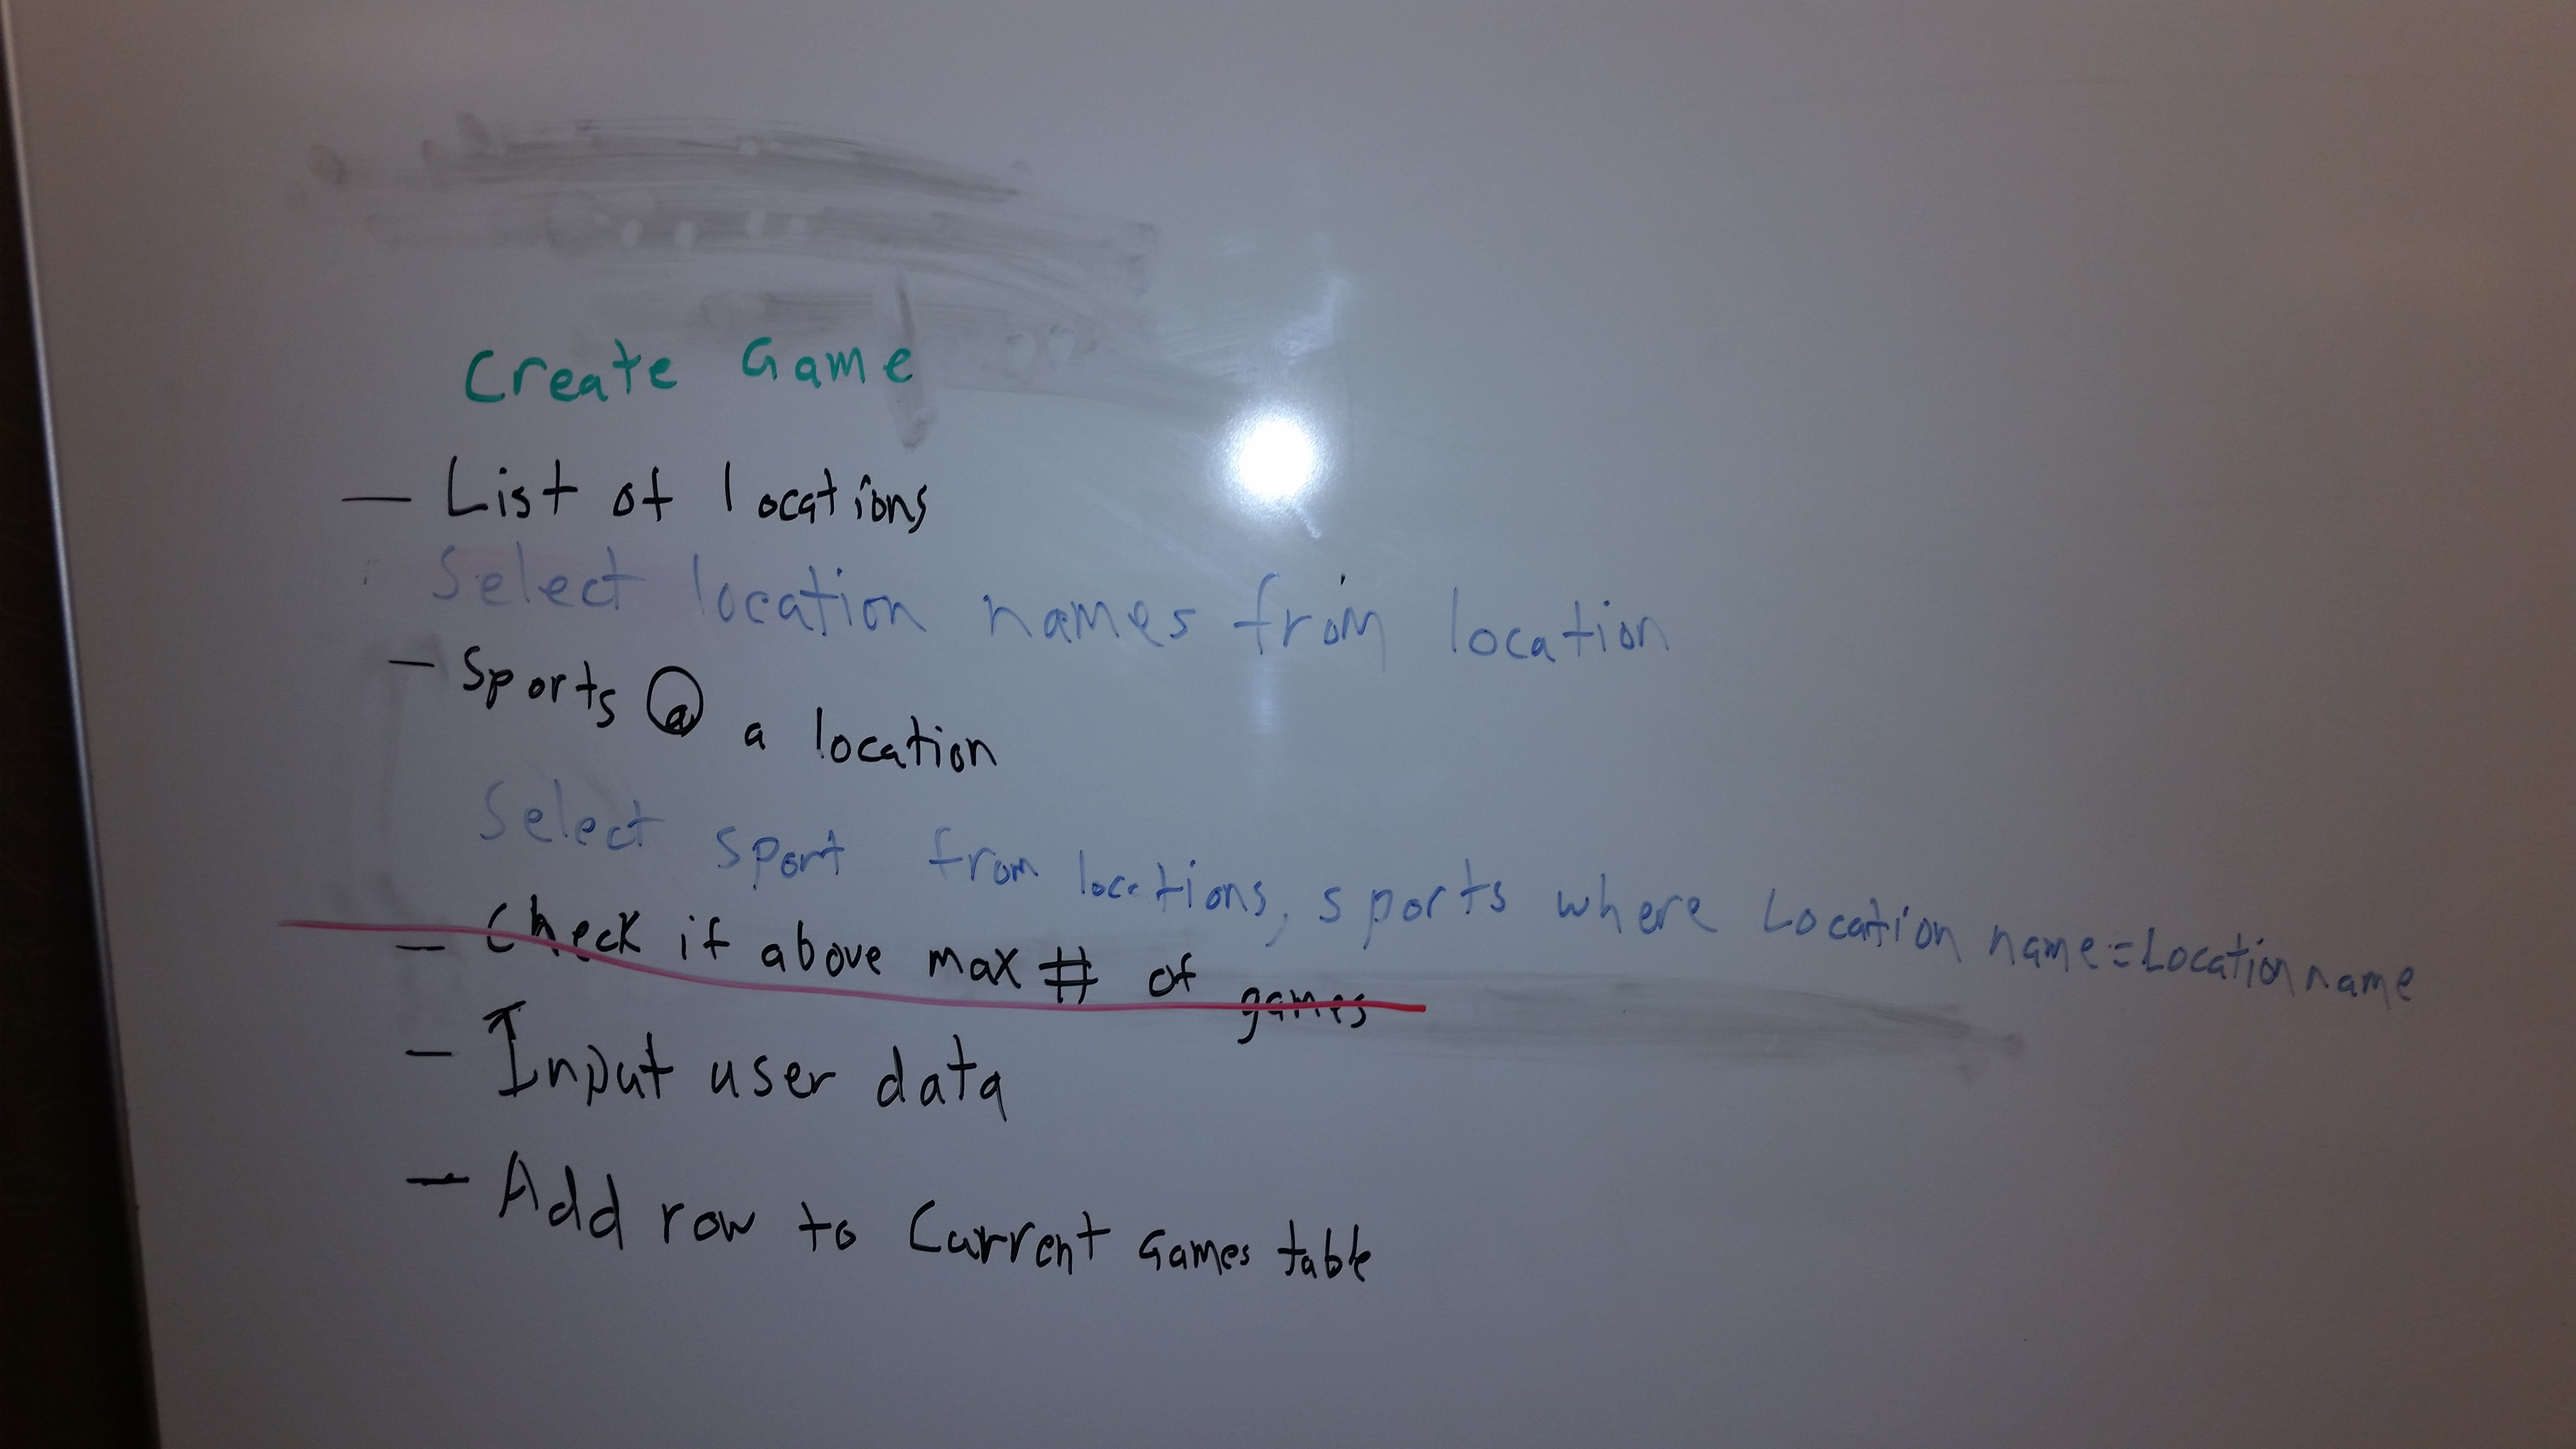 Create Game
— List of locations
Select location names from location
— Sports @ a location
Select sport from locations, sports where Location name = Locationname
— Check if above max # of games
— Input user data
— Add row to Current Games table